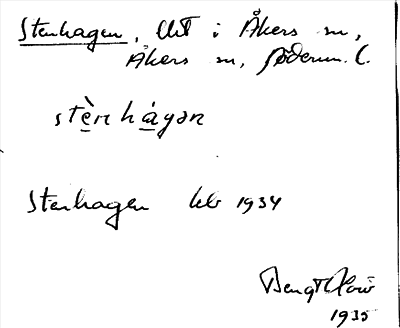 Stenhagen, Åkers sn,
Åkers sn, Söderm. l.
stènhágən
Stenhagen 1934
Bengt
1935